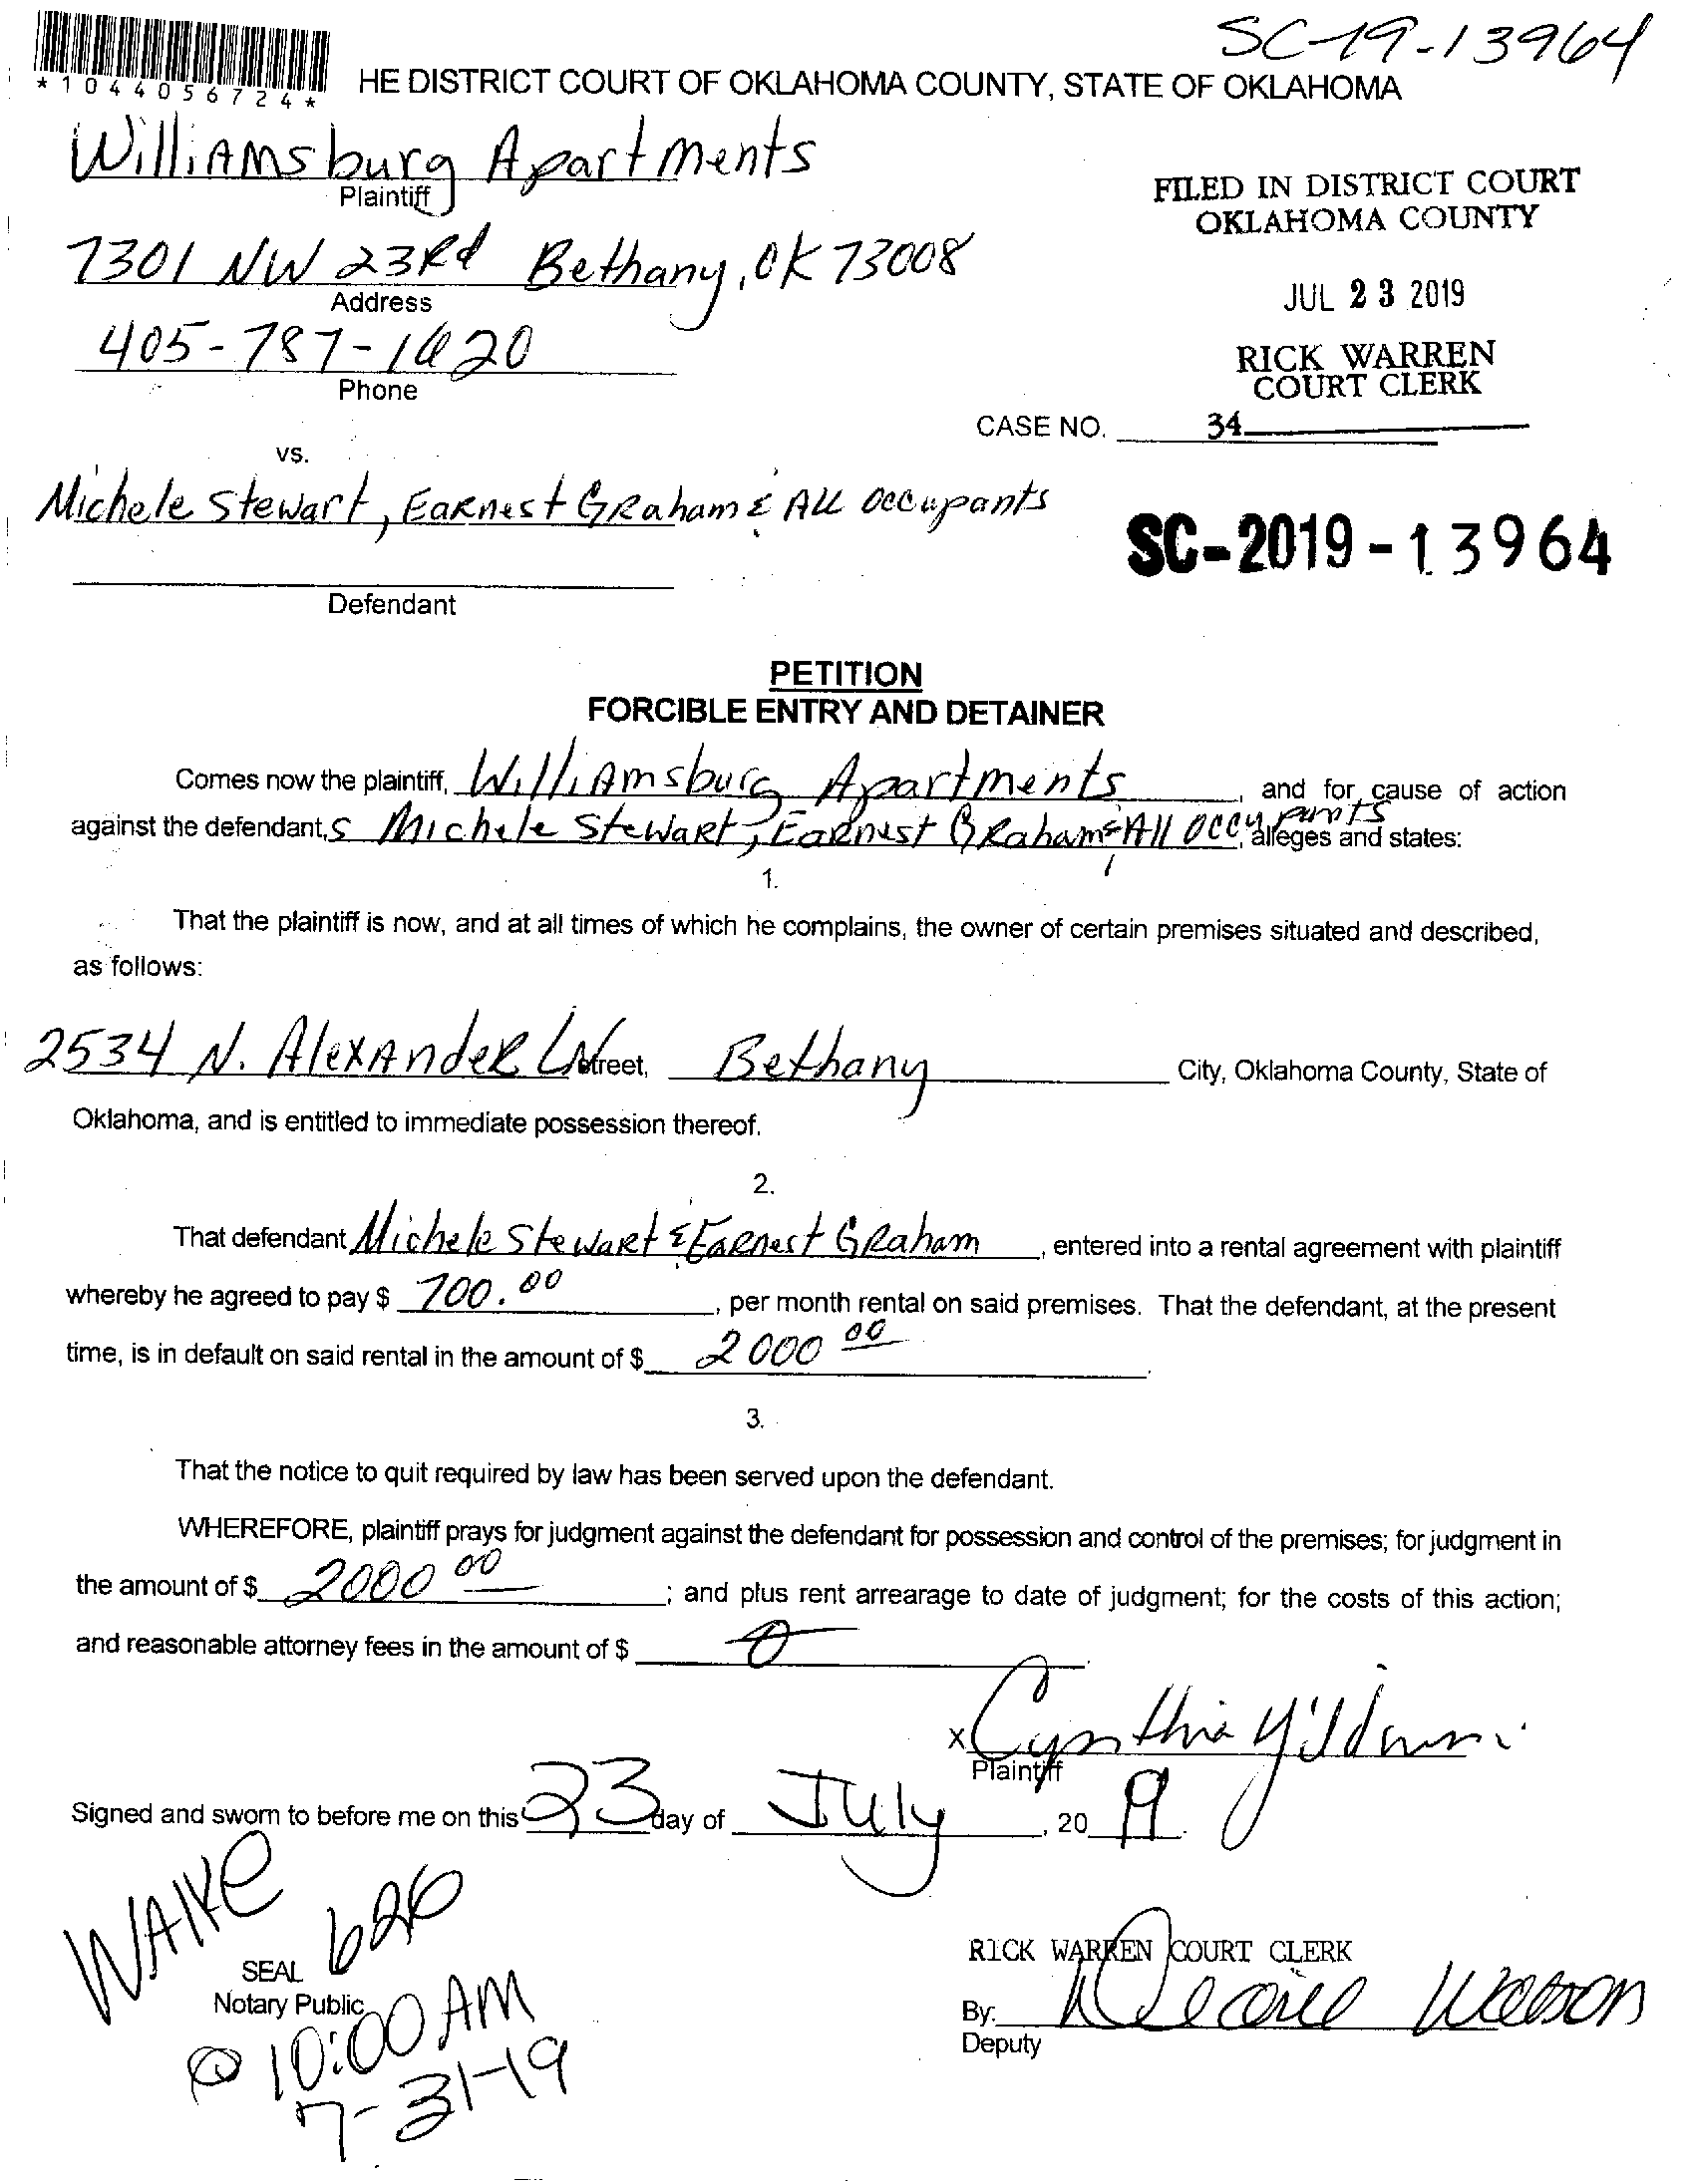 SC-19-13964
*1044056724*
HE DISTRICT COURT OF OKLAHOMA COUNTY, STATE OF OKLAHOMA
WilliAmsburg Apartments
Plaintiff
FILED IN DISTRICT COURT
OKLAHOMA COUNTY
7301 NW 23Rd Bethany, OK 73008
Address
JUL 23 2019
405-787-1620
Phone
RICK WARREN
COURT CLERK
CASE NO. 34
vs.
Michele Stewart, EaRnest GRaham & All Occupants
SC-2019-13964
Defendant
PETITION
FORCIBLE ENTRY AND DETAINER
Comes now the plaintiff, WilliAmsburg Apartments, and for cause of action
against the defendant,s Michele StewaRt, EaRnest GRaham & All Occupants, alleges and states:
1.
That the plaintiff is now, and at all times of which he complains, the owner of certain premises situated and described,
as follows:
2534 N. AlexAndeR LN Street, Bethany City, Oklahoma County, State of
Oklahoma, and is entitled to immediate possession thereof.
2.
That defendant Michele StewaRt & EaRnest GRaham, entered into a rental agreement with plaintiff
whereby he agreed to pay $ 700.00, per month rental on said premises. That the defendant, at the present
time, is in default on said rental in the amount of $ 2000 00.
3.
That the notice to quit required by law has been served upon the defendant.
WHEREFORE, plaintiff prays for judgment against the defendant for possession and control of the premises; for judgment in
the amount of $ 2000 00; and plus rent arrearage to date of judgment; for the costs of this action;
and reasonable attorney fees in the amount of $ 0.
x Cynthia
Plaintiff
Signed and sworn to before me on this 23 day of July, 2019.
WAIKE 626
SEAL
Notary Public
@ 10:00 AM
7-31-19
RICK WARREN COURT CLERK
By: Watson
Deputy